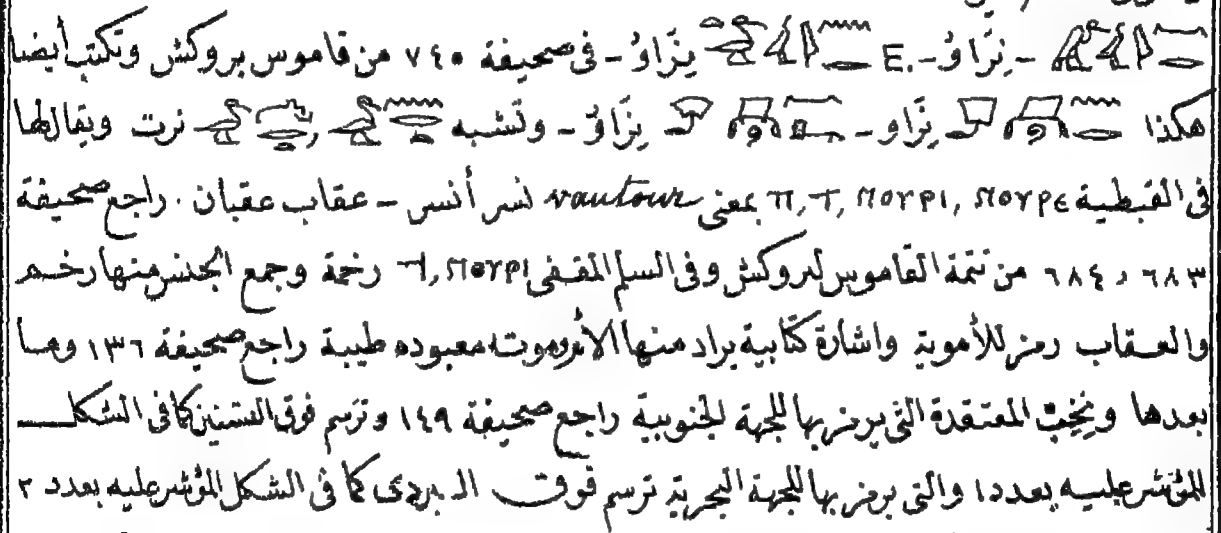 - نِرَّاوُ - .E نِرَّاوُ - فى صحيفة ٧٤٥ من قاموس بروكش وتكتب أيضا
هكذا نِرَّاو - نِرَّاوُ - وتشبه , نرت ويقال لها
فى القبطية ⲡ, ⲧ, ⲛⲟⲩⲣⲓ, ⲛⲟⲩⲣⲉ بمعنى vautour نسر أنسر - عقاب عقبان . راجع صحيفة
٦٨٣ و ٦٨٤ من تتمة القاموس لبروكش وفى السلم المقفى ϯ, ⲛⲟⲩⲣⲓ رخمة وجمع الجنس منها رخم
والعقاب رمز للأموية واشارة كتابية يراد منها الأم وموت معبوده طيبة راجع صحيفة ١٣٦ وما
بعدها ونخب المعتقدة التى يرمز بها للجهة الجنوبية راجع صحيفة ١٤٩ وترسم فوق البشنين كما فى الشكل
المؤشر عليه بعدد ١ والتى يرمز بها للجهة البحرية ترسم فوق البردى كما فى الشكل المؤشر عليه بعدد ٢